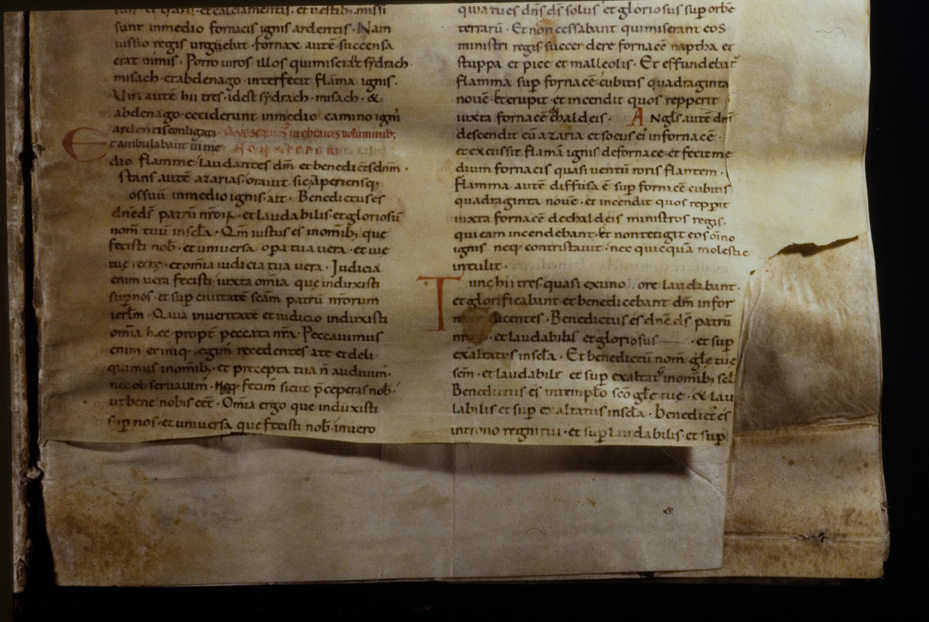 sunt inmedio fornacis ignis ardentis · Nam
iussio regis urguebat · fornax autē succensa
erat nimis · Porro uiros illos qui miserāt sydrach
misach · et abdenago · interfecit flāma ignis ·
Uiri autē hii tres · idest sydrach · misach · &
abdenago · ceciderunt inmedio camino igni
ardentis conligati · in ebraicis uoluminib;
Et ambulabant in me
dio flamme · laudantes dm̄ et benedicentes dnm̄ ·
Stans autē azarias · orauit sic · aperiensq;
ossuū inmedio ignis · ait · Benedictus es
dn̄e ds̄ patrū nr̄orū · et laudabilis et gloriosū
nom̄ tuū inscła · Qm̄ iustus es inomib; que
fecisti nob · et uniuersa opa tua uera · et uie
tue · et omīa iudicia tua uera · Judicia
enim uera fecisti · iuxta omīa que induxisti
sup nos · et sup ciuitatē scām patrū nr̄orum
ierłm · Quia inueritate et iudicio induxisti
omīa hec · propt peccata nr̄a · Peccauimus
enim et iniq; egim̄ recedentes a te · et deli
quimus inomib; · et precepta tua n̄ audiuim̄ ·
nec obseruauim̄ · Nec fecim̄ sicut p̄ceperas nob ·
ut bene nobis eēt · Omīa ergo que induxisti
sup nos · et uniuersa que fecisti nob · in uero
quia tu es dn̄s ds̄ solus · et gloriosus sup orbē
terrarū · Et non cessabant qui miserant eos
ministri regis · succendere fornacē naptha et
stuppa et pice et malleolis · Et effundebat
flamma sup fornacē cubitis quadraginta
nouē · et erupit et incendit quos repperit
iuxta fornacē chaldeis · Angls autē dnī
descendit cū azaria et socus ei in fornacē ·
et excussit flamā ignis de fornace · et fecit me
dium fornacis quasi uentū roris flantem ·
Flamma autē diffusa ē sup fornacē cubitis
quadraginta nouē · et incendit quos reppit
iuxta fornacē de chaldeis ministros regis ·
qui eam incendebant · Et non tetigit eos oīno
ignis neq; contristauit · nec quicquā molestie
intulit ·
Tunc hii tres · quasi ex uno ore laudabant ·
et glorificabant et benedicebant dm̄ infor
dicentes · Benedictus es dn̄e ds̄ patrū
· et laudabilis et gloriosus · et sup
exaltatus inscła · Et benedictū nom̄ głe tue
scm̄ · et laudabile et sup exaltat inomib; scł
Benedictus es intemplo scō głe tue · & lau
labilis et sup exaltatus inscła · Benedict es
in trono regni tui · et sup laudabilis · et sup